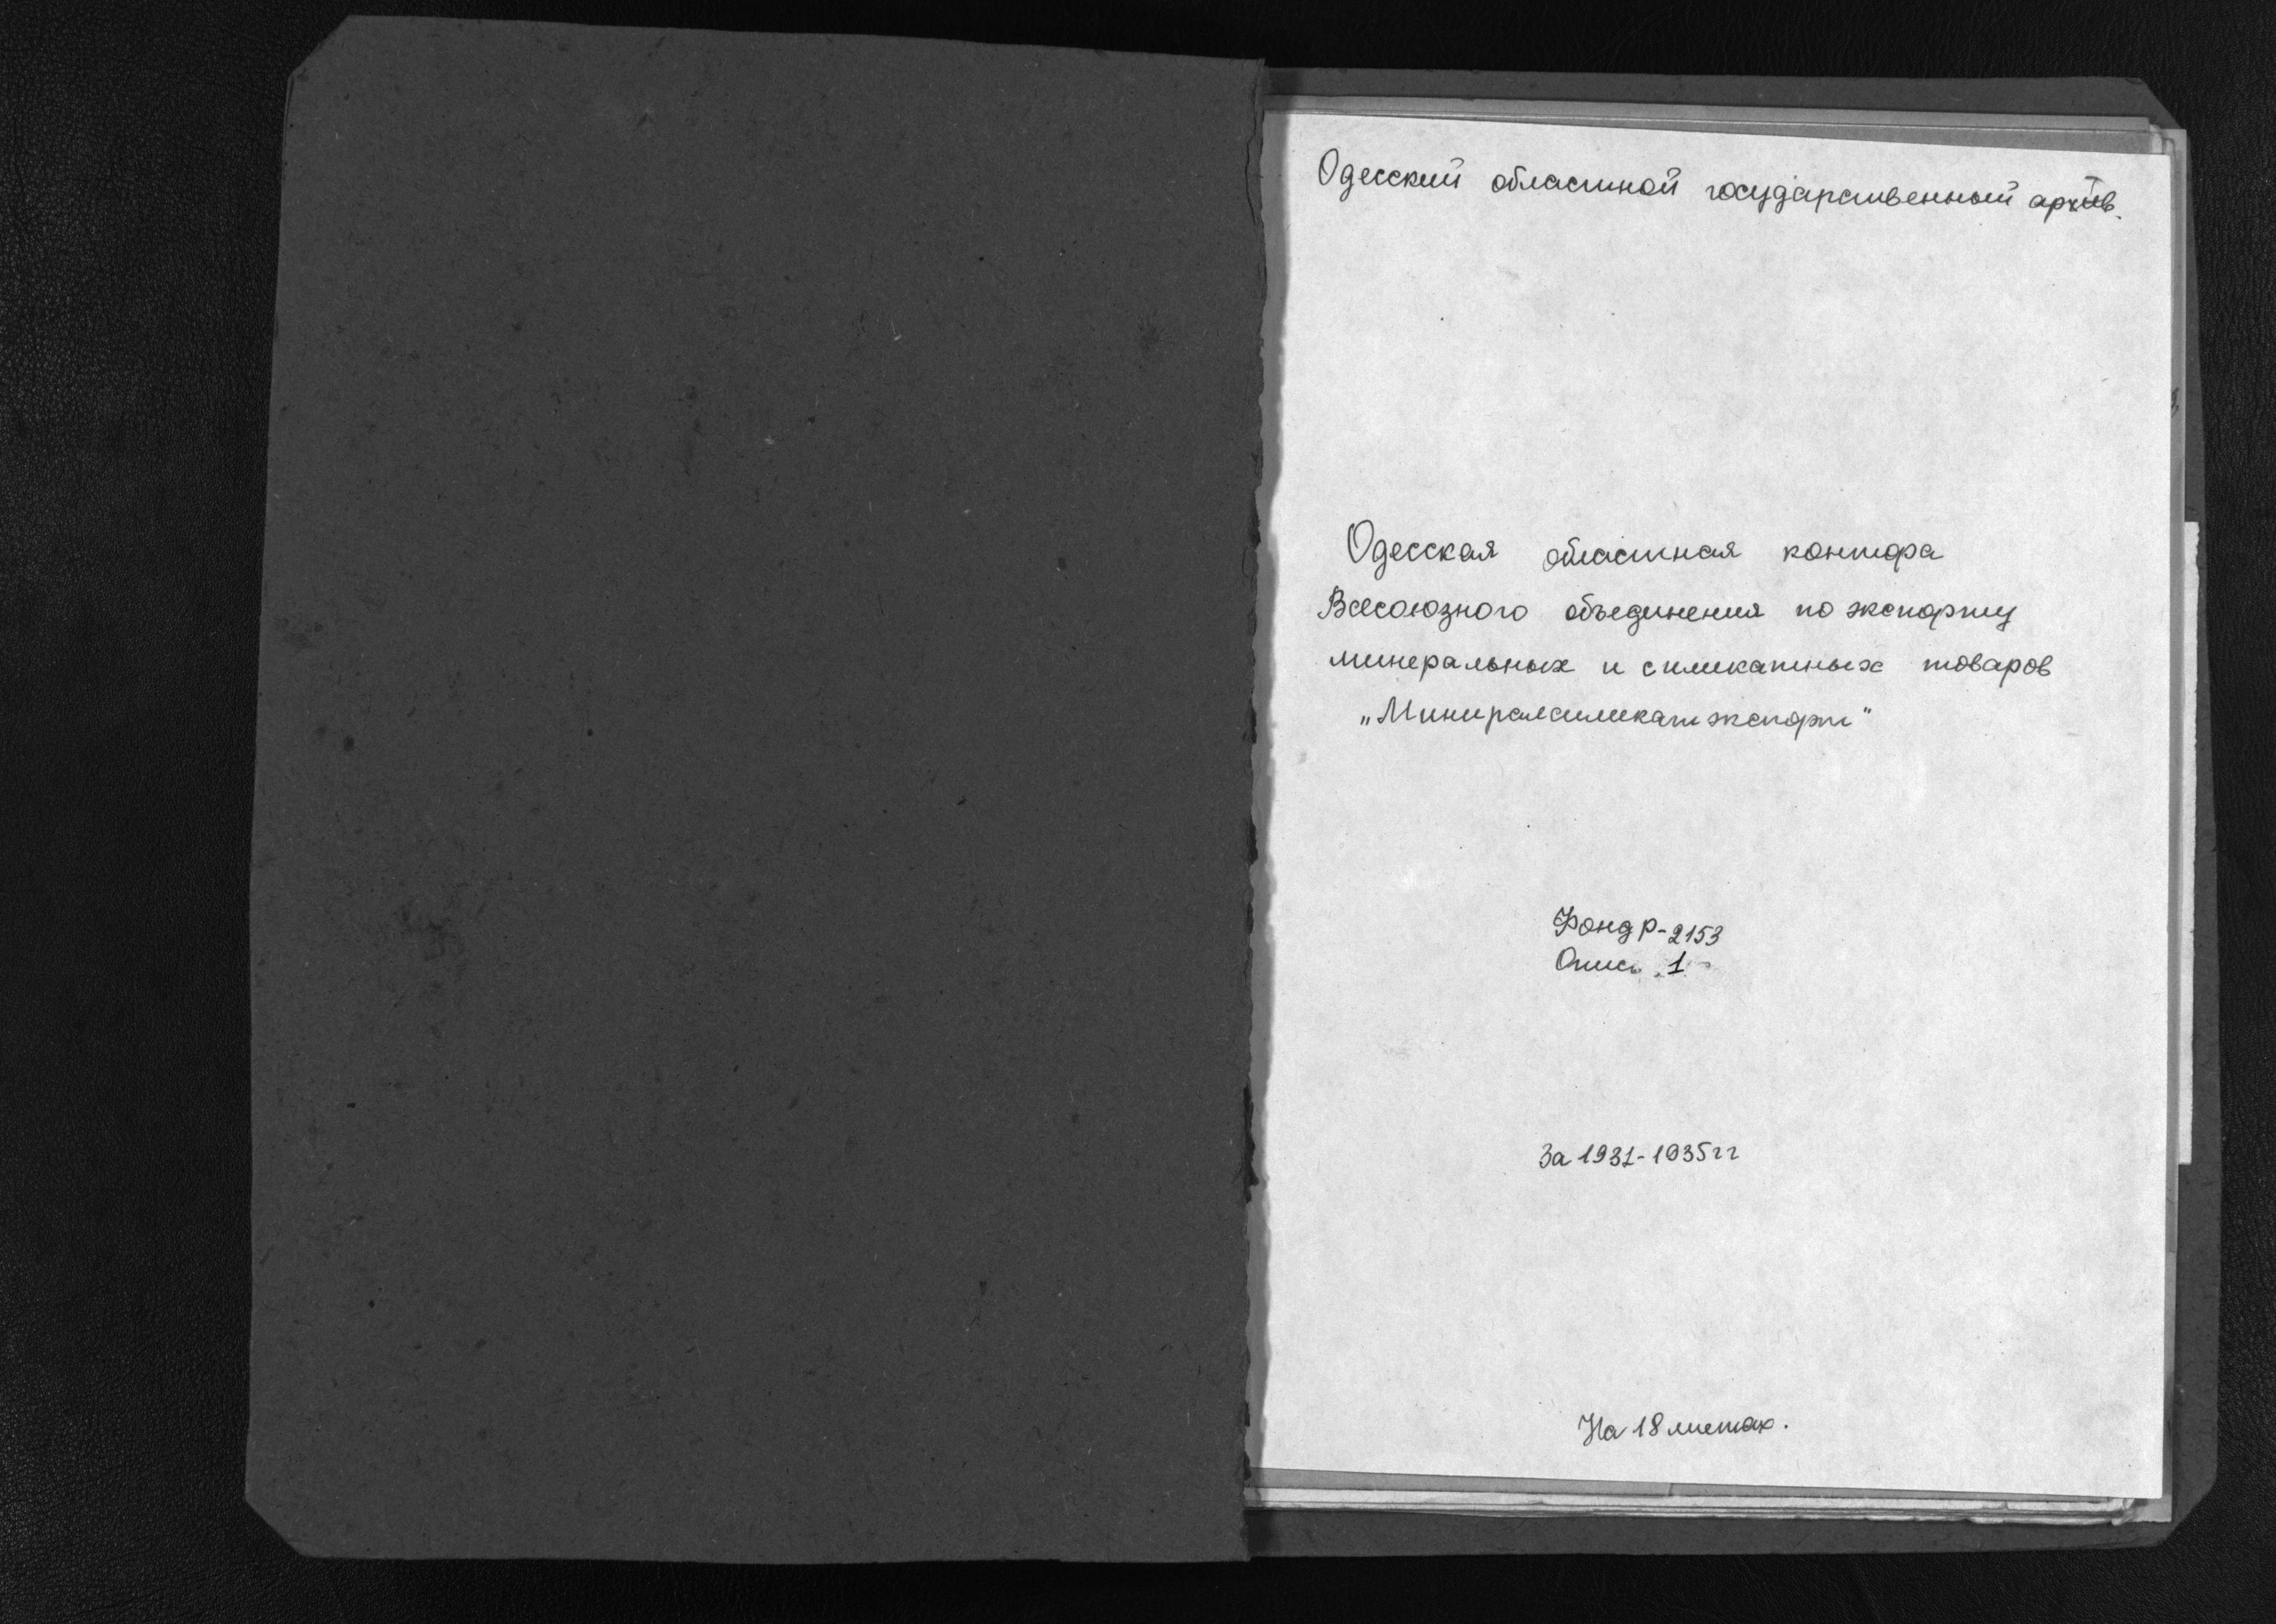 Одесский областной государственный архив.
Одесская областная контора
Всесоюзного объединения по экспорту
минеральных и силикатных товаров
„Миниралсиликатэкспорт"
Фонд р-2153
Опись 1
За 1931-1935 гг
На 18 листах.